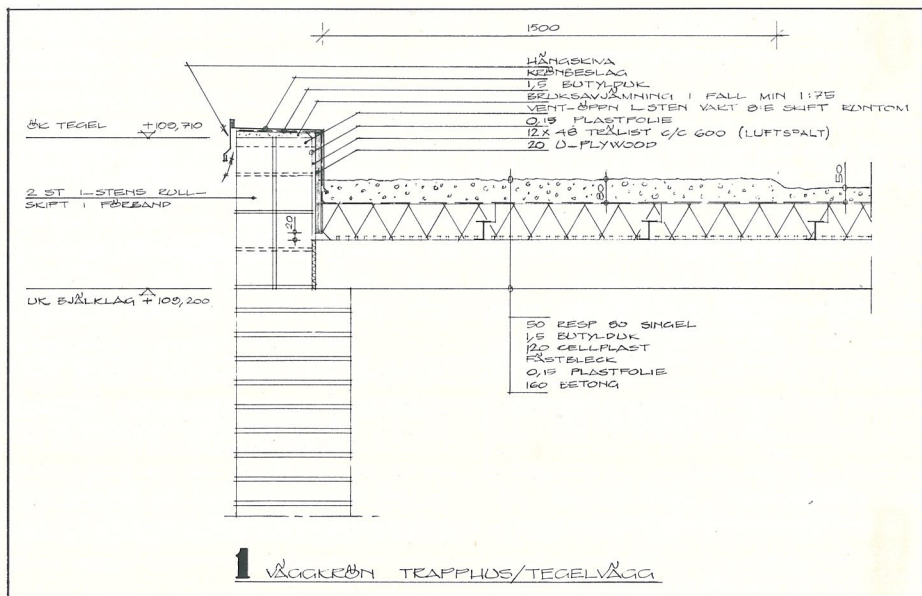 1500
HÄNGSKIVA
KRÖNBESLAG
1,5 BUTYLDUK
BRUKSAVJÄMNING I FALL MIN 1:75
VENT-ÖPPN L-STEN VAKT 8:E SKIFT RUNTOM
0,15 PLASTFOLIE
12 X 48 TRÄLIST C/C 600 (LUFTSPALT)
20 U-PLYWOOD
ÖK TEGEL +109,710
2 ST 1-STENS RULL-
SKIFT I FÖRBAND
50
80
20
UK BJÄLKLAG +109,200
50 RESP 80 SINGEL
1,5 BUTYLDUK
120 CELLPLAST
FÄSTBLECK
0,15 PLASTFOLIE
160 BETONG
1 VÄGGKRÖN TRAPPHUS/TEGELVÄGG